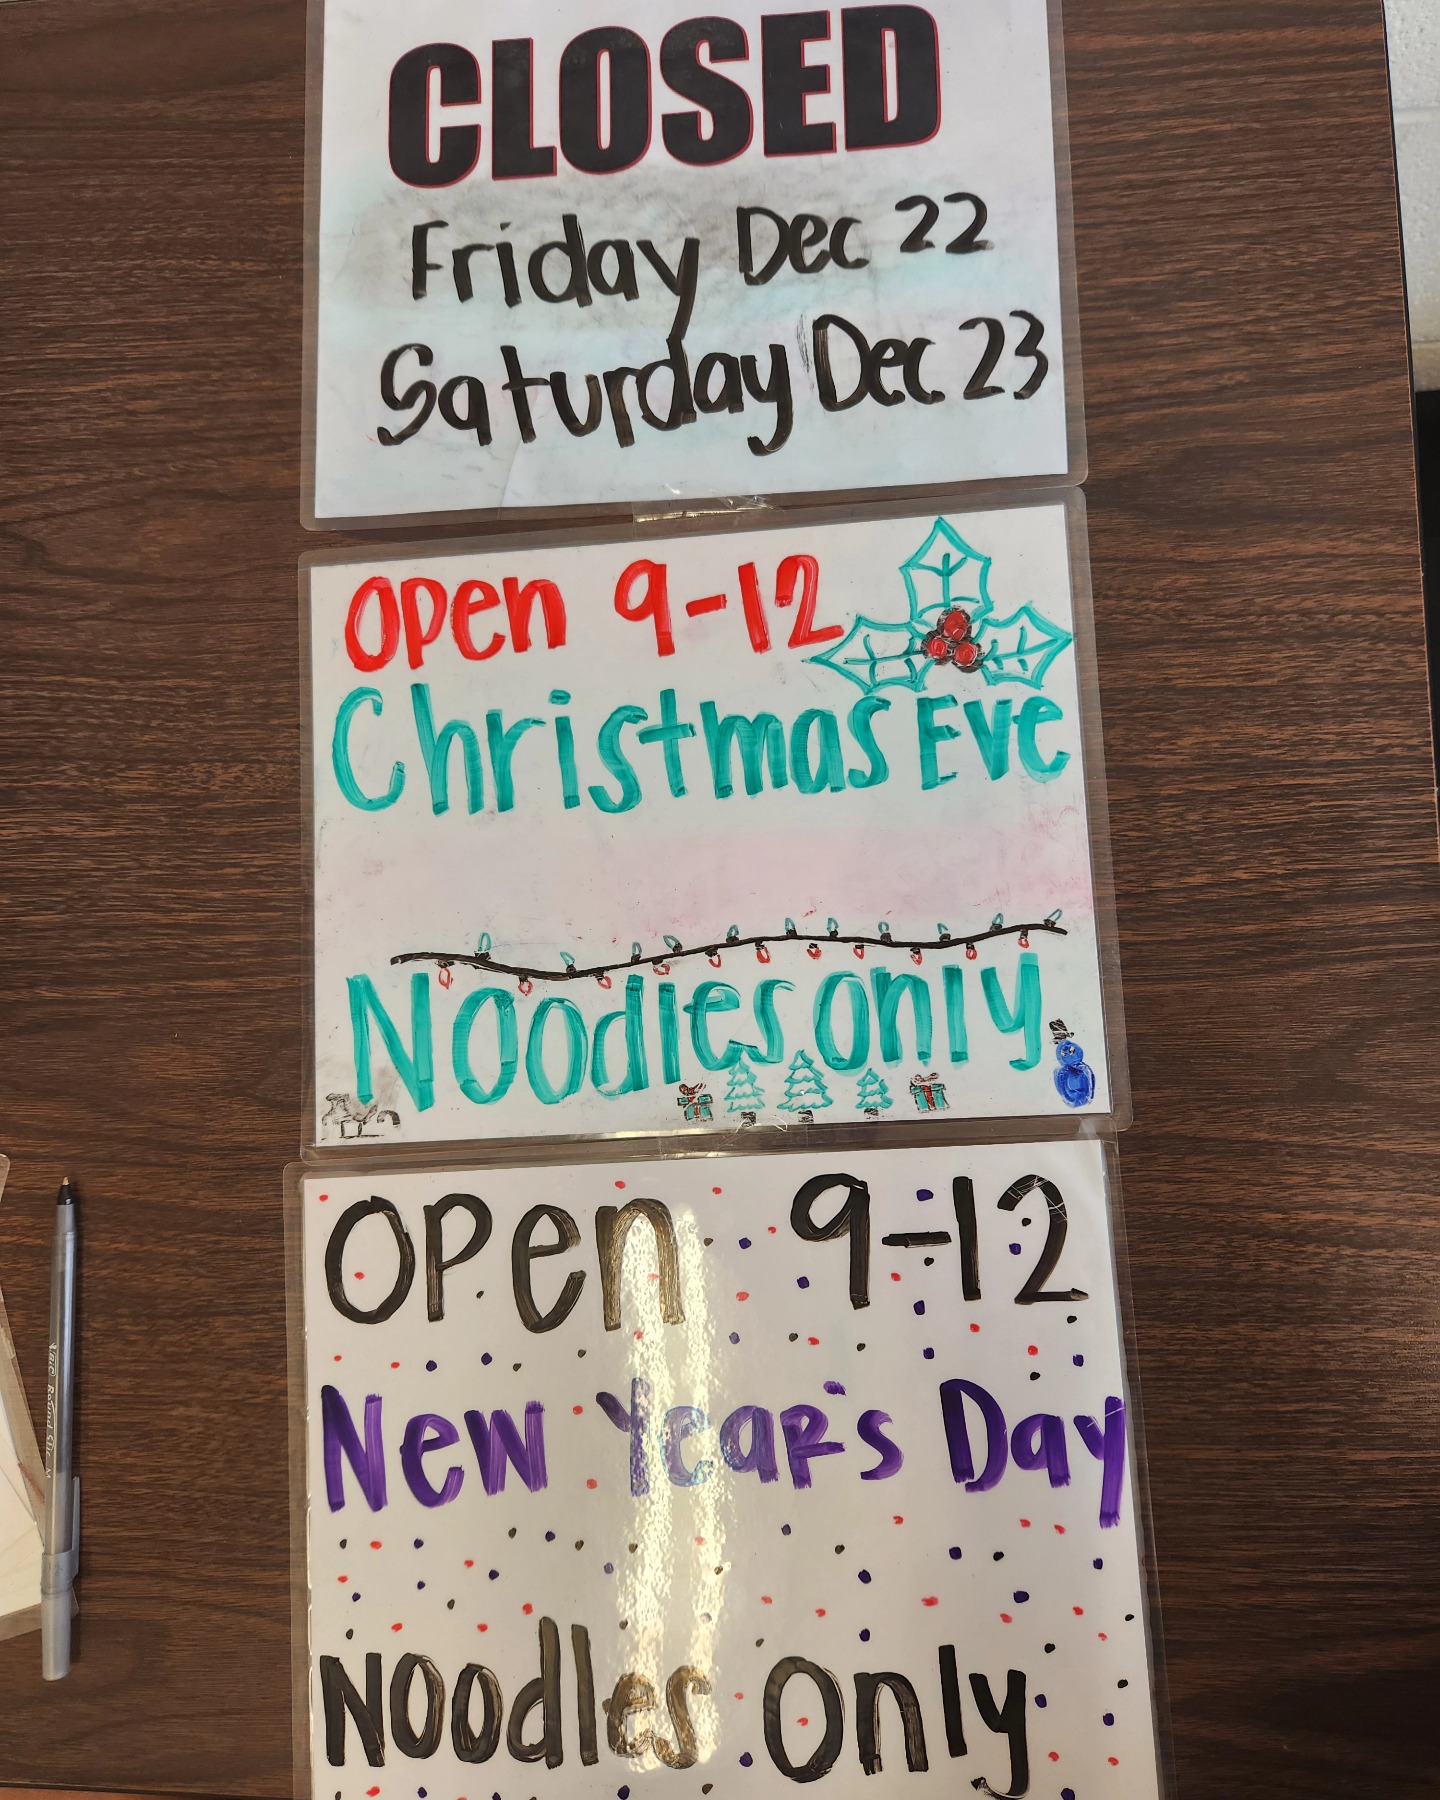 CLOSED
Friday Dec 22
Saturday Dec 23
Open 9-12
Christmas Eve
Noodles only
Open 9-12
New Year's Day
Noodles Only
BIC Round Stic M